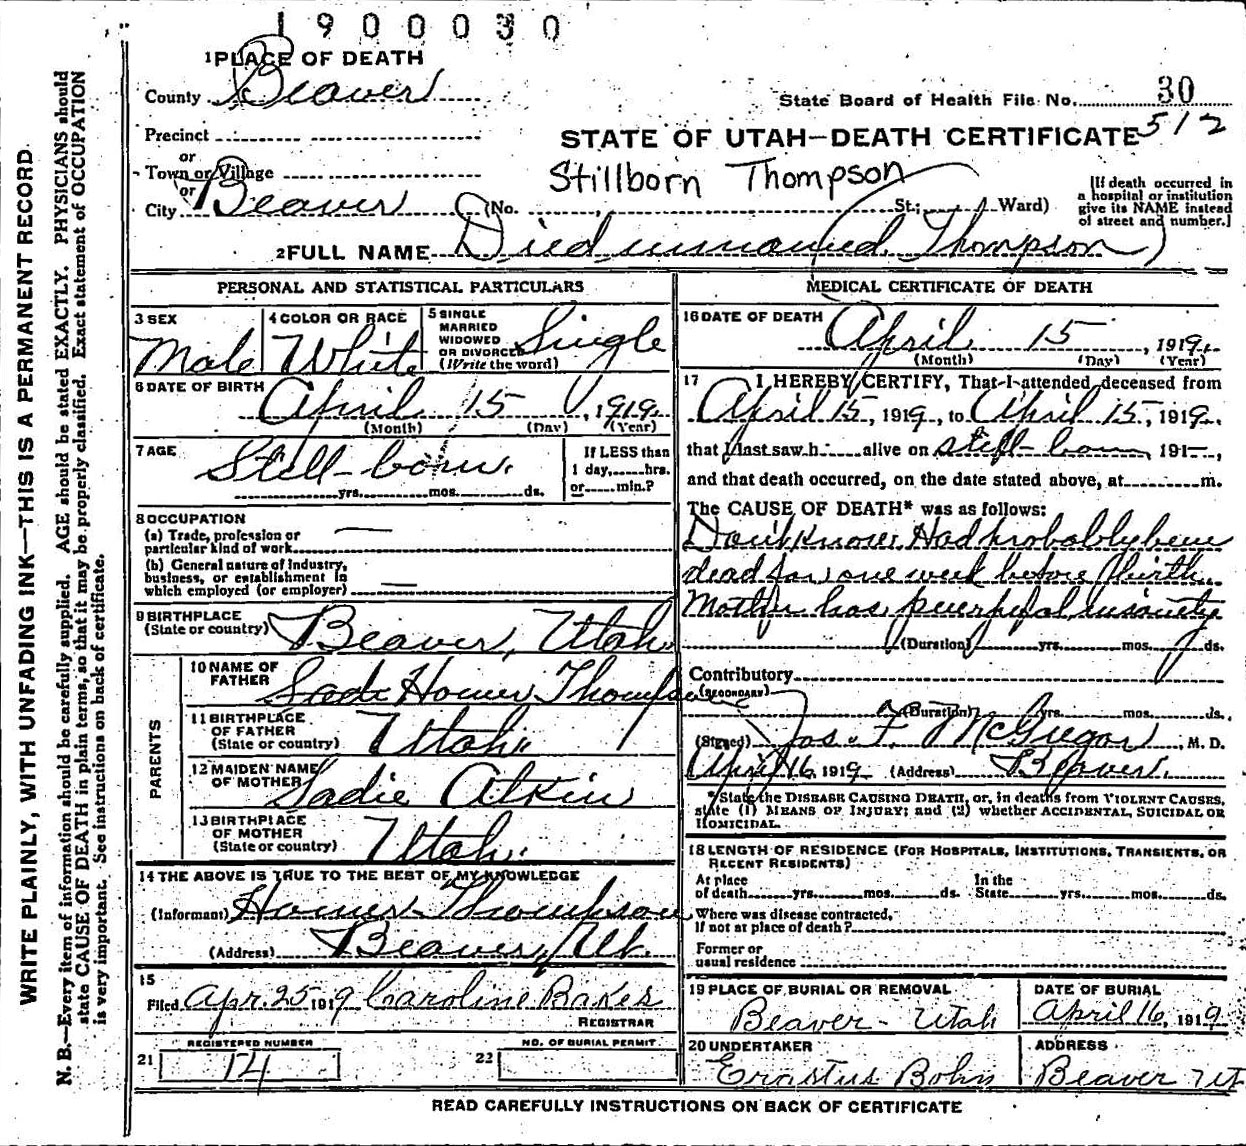 1900030
1 PLACE OF DEATH
County Beaver
State Board of Health File No. 30
Precinct
512
STATE OF UTAH—DEATH CERTIFICATE
or
Town or Village
Stillborn Thompson
or
City Beaver (No. St.; Ward)
[If death occurred in
a hospital or institution
give its NAME instead
of street and number.]
2 FULL NAME Died unnamed (Thompson)
PERSONAL AND STATISTICAL PARTICULARS
3 SEX
Male
4 COLOR OR RACE
White
5 SINGLE
MARRIED
WIDOWED
OR DIVORCED
(Write the word)
Single
6 DATE OF BIRTH
April 15, 1919
(Month) (Day) (Year)
7 AGE
Still-born
yrs. mos. ds.
If LESS than
1 day, hrs.
or min.?
8 OCCUPATION
(a) Trade, profession or
particular kind of work
(b) General nature of Industry,
business, or establishment in
which employed (or employer)
9 BIRTHPLACE
(State or country)
Beaver, Utah
PARENTS
10 NAME OF
FATHER
Homer Thompson
11 BIRTHPLACE
OF FATHER
(State or country)
Utah
12 MAIDEN NAME
OF MOTHER
Sadie Atkin
13 BIRTHPLACE
OF MOTHER
(State or country)
Utah
14 THE ABOVE IS TRUE TO THE BEST OF MY KNOWLEDGE
(Informant) Homer Thompson
(Address) Beaver, Ut.
15
Filed Apr. 25 1919 Caroline Baker
REGISTRAR
REGISTERED NUMBER
21 14
NO. OF BURIAL PERMIT
22
MEDICAL CERTIFICATE OF DEATH
16 DATE OF DEATH
April 15, 1919
(Month) (Day) (Year)
17 I HEREBY CERTIFY, That I attended deceased from
April 15, 1919, to April 15, 1919,
that I last saw h alive on still-born, 191—,
and that death occurred, on the date stated above, at m.
The CAUSE OF DEATH* was as follows:
Don't know. Had probably been
dead for one week before birth.
Mother has puerperal insanity
(Duration) yrs. mos. ds.
Contributory
(SECONDARY)
(Duration) yrs. mos. ds.
(Signed) Jas. F. McGregor, M. D.
April 16, 1919 (Address) Beaver.
*State the DISEASE CAUSING DEATH, or, in deaths from VIOLENT CAUSES,
state (1) MEANS OF INJURY; and (2) whether ACCIDENTAL, SUICIDAL OR
HOMICIDAL.
18 LENGTH OF RESIDENCE (FOR HOSPITALS, INSTITUTIONS, TRANSIENTS, OR
RECENT RESIDENTS)
At place
of death yrs. mos. ds.
In the
State yrs. mos. ds.
Where was disease contracted,
If not at place of death?
Former or
usual residence
19 PLACE OF BURIAL OR REMOVAL
Beaver - Utah
DATE OF BURIAL
April 16, 1919
20 UNDERTAKER
Erastus Bohn
ADDRESS
Beaver Ut
READ CAREFULLY INSTRUCTIONS ON BACK OF CERTIFICATE
WRITE PLAINLY, WITH UNFADING INK—THIS IS A PERMANENT RECORD
N. B.—Every item of information should be carefully supplied. AGE should be stated EXACTLY. PHYSICIANS should
state CAUSE OF DEATH in plain terms, so that it may be properly classified. Exact statement of OCCUPATION
is very important. See instructions on back of certificate.